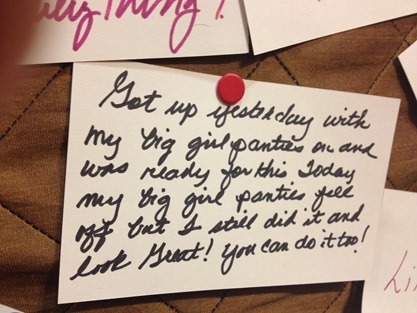 everything!
Got up yesterday with
my big girl panties on and
was ready for this Today
my big girl panties fell
off but I still did it and
look Great! You can do it too!
Li